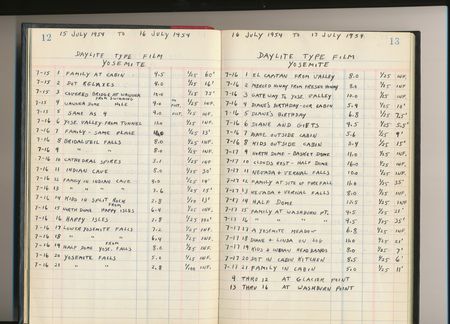 12 15 JULY 1954 TO 16 JULY 1954
DAYLITE TYPE FILM
YOSEMITE
7-15 1 FAMILY AT CABIN 4.5 1/25 60'
7-15 2 DOT RELAXES 4.0 1/25 16'
7-15 3 COVERED BRIDGE AT WAWONA 1/25 75'
7-15 4 WAWONA DOME 1/25 INF.
7-15 5 SAME AS 4 4.0 1/25 INF.
7-16 6 YOSE VALLEY FROM TUNNEL 1/25 INF.
7-16 7 FAMILY - SAME PLACE 1/25 15'
7-16 8 BRIDALVEIL FALLS 8.0 1/25 INF.
7-16 9 " " 8.0 1/25 INF.
7-16 10 CATHEDRAL SPIRES 1/25 INF.
7-16 11 INDIAN CAVE 8.0 1/25 30'
7-16 12 FAMILY IN INDIAN CAVE 1/25
7-16 13 " " " 1/25 15'
7-16 14 KIDS IN SPLIT ROCK 2.8 1/10 13'
7-16 15 NORTH DOME FROM HAPPY ISLES 6.4 1/25 INF.
7-16 16 HAPPY ISLES 2.8 1/25
7-16 17 LOWER YOSEMITE FALLS 7.2 1/25 INF.
7-16 18 " " " 6.4 1/25 INF.
7-16 19 HALF DOME FROM YOSE. FALLS 8.0 1/25 INF.
7-16 20 YOSEMITE FALLS 5.0 1/25 INF.
7-16 21 " " 2.8 1/100 INF.
16 JULY 1954 TO 17 JULY 1954 13
DAYLITE TYPE FILM
YOSEMITE
7-16 1 EL CAPITAN FROM VALLEY 8.0 1/25 INF.
7-16 2 MERCED RIVER FROM 8.0 1/25 INF.
7-16 3 GATEWAY TO YOSE VALLEY 1/25 INF.
7-16 4 DIANE'S BIRTHDAY - OUR CABIN 5.4 1/25
7-16 5 DIANE'S BIRTHDAY 6.8 1/25 7.5'
7-16 6 DIANE AND GIFTS 4.5 1/25 5.5'
7-16 7 OUTSIDE CABIN 5.6 1/25 9'
7-16 8 KIDS OUTSIDE CABIN 1/25 15'
7-16 9 NORTH DOME - BASKET DOME 1/25 INF.
7-16 10 CLOUDS REST - HALF DOME 16.0 1/25 INF.
7-16 11 NEVADA + VERNAL FALLS 1/25 INF.
7-16 12 FAMILY AT SITE OF FIREFALL 1/25 35'
7-17 13 NEVADA + VERNAL FALLS 8.0 1/25 INF.
7-17 14 HALF DOME 1/25 INF.
7-17 15 FAMILY AT WASHBURN PT. 4.5 1/25 21'
7-17 16 " " " " 4.5 1/25 35'
7-17 17 A YOSEMITE MEADOW 6.8 1/25 INF.
7-17 18 DIANE + LINDA ON LOG 1/25 21'
7-17 19 KIDS + INDIAN HEADBANDS 8.0 1/25 7'
7-17 20 DOT IN CABIN KITCHEN 8.5 1/25 6'
7-17 21 FAMILY IN CABIN 5.0 1/25 11'
9 THRU 12 AT GLACIER POINT
13 THRU 16 AT WASHBURN POINT